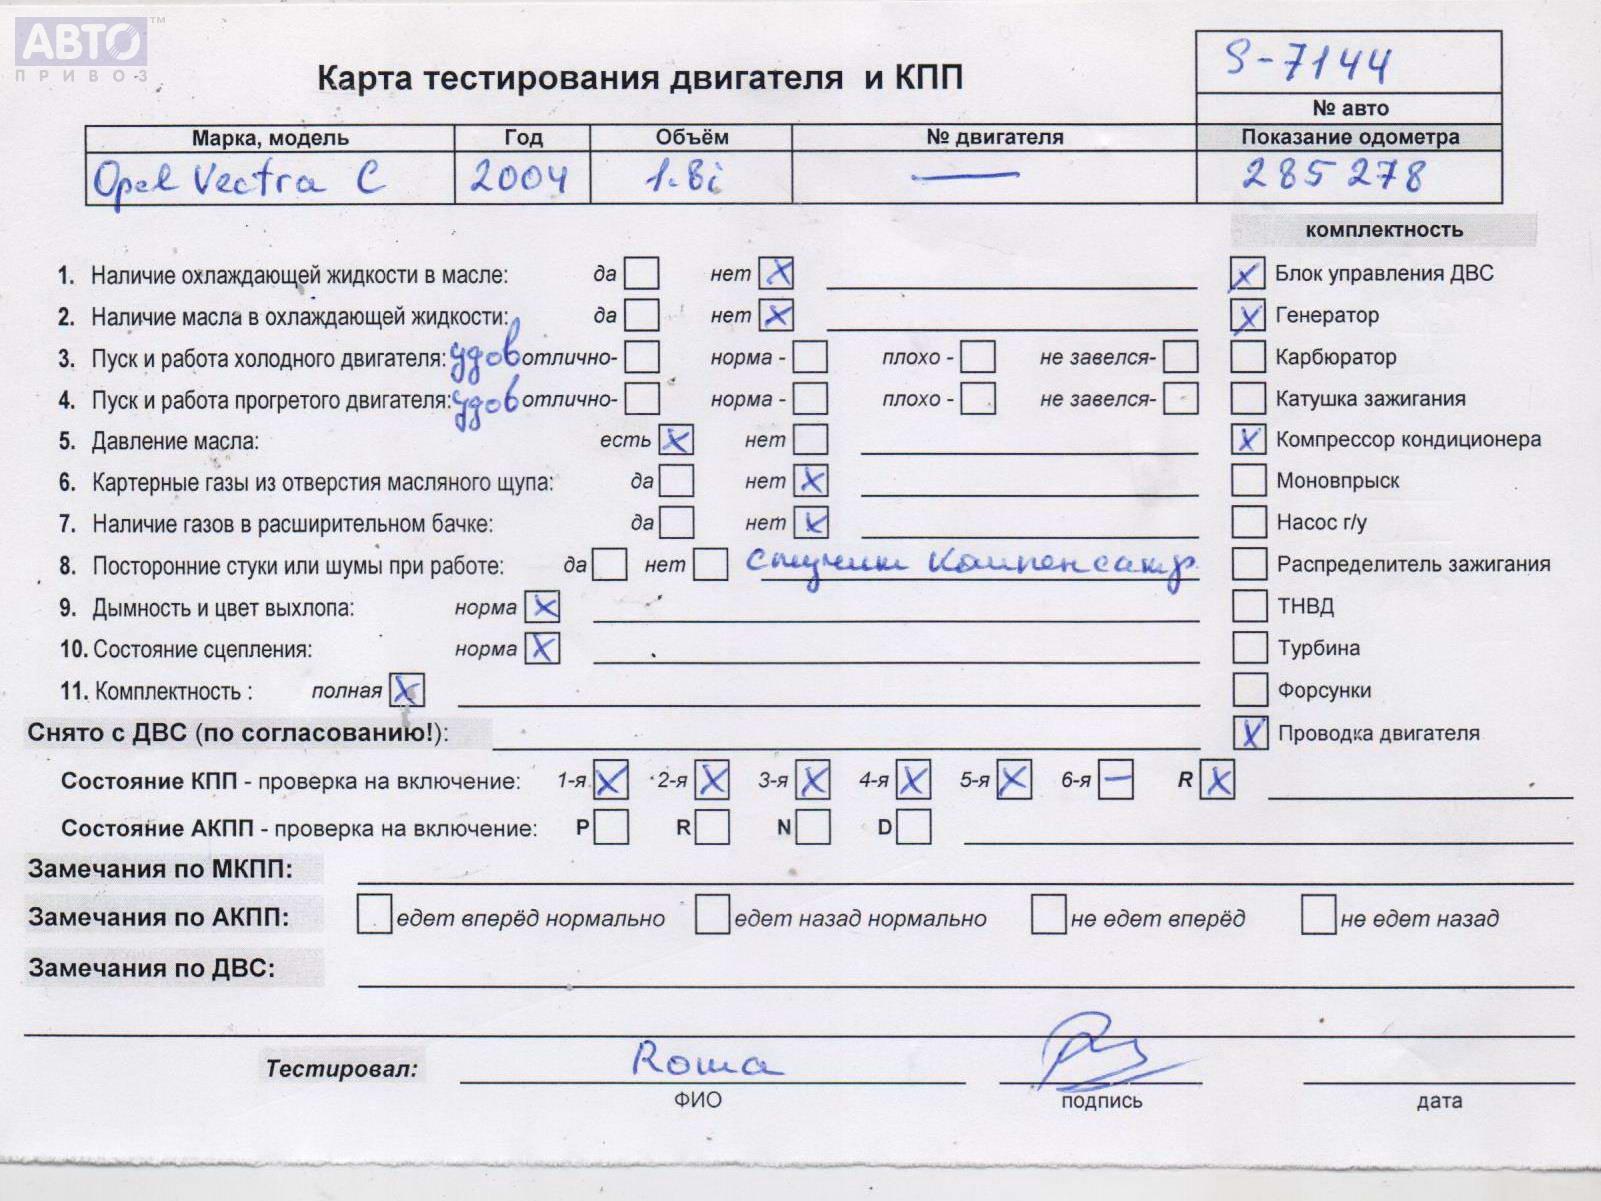 АВТО™
ПРИВОЗ
S-7144
Карта тестирования двигателя и КПП
№ авто
Марка, модель Год Объём № двигателя Показание одометра
Opel Vectra C 2004 1.8i — 285 278
комплектность
1. Наличие охлаждающей жидкости в масле: да нет X Блок управления ДВС X
2. Наличие масла в охлаждающей жидкости: да нет X Генератор X
3. Пуск и работа холодного двигателя: удов отлично- норма - плохо - не завелся- Карбюратор
4. Пуск и работа прогретого двигателя: удов отлично- норма - плохо - не завелся- Катушка зажигания
5. Давление масла: есть X нет X Компрессор кондиционера
6. Картерные газы из отверстия масляного щупа: да нет X Моновпрыск
7. Наличие газов в расширительном бачке: да нет X Насос г/у
8. Посторонние стуки или шумы при работе: да нет Распределитель зажигания
9. Дымность и цвет выхлопа: норма X ТНВД
10. Состояние сцепления: норма X Турбина
11. Комплектность : полная X Форсунки
Снято с ДВС (по согласованию!): X Проводка двигателя
Состояние КПП - проверка на включение: 1-я X 2-я X 3-я X 4-я X 5-я X 6-я — R X
Состояние АКПП - проверка на включение: P R N D
Замечания по МКПП:
Замечания по АКПП: едет вперёд нормально едет назад нормально не едет вперёд не едет назад
Замечания по ДВС:
Тестировал: Roma
ФИО подпись дата